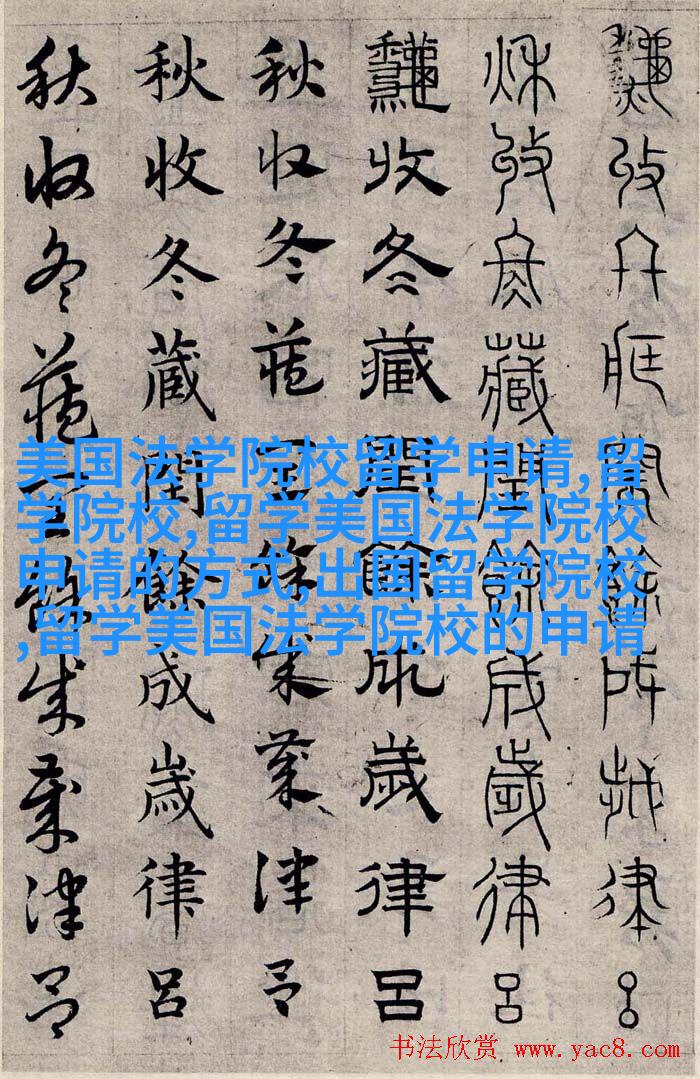 秋收冬藏閏餘成歲律呂
秋收冬藏閏餘成歲律呂
秋收冬藏閏餘成歲律呂
秋收冬藏閏餘成歲律呂
秋收冬藏閏餘成歲律呂
秋收冬藏閏餘成歲律呂
美国法学院校留学申请,留
学院校,留学美国法学院校
申请的方式,出国留学院校
,留学美国法学院校的申请
书法欣赏 www.yac8.com